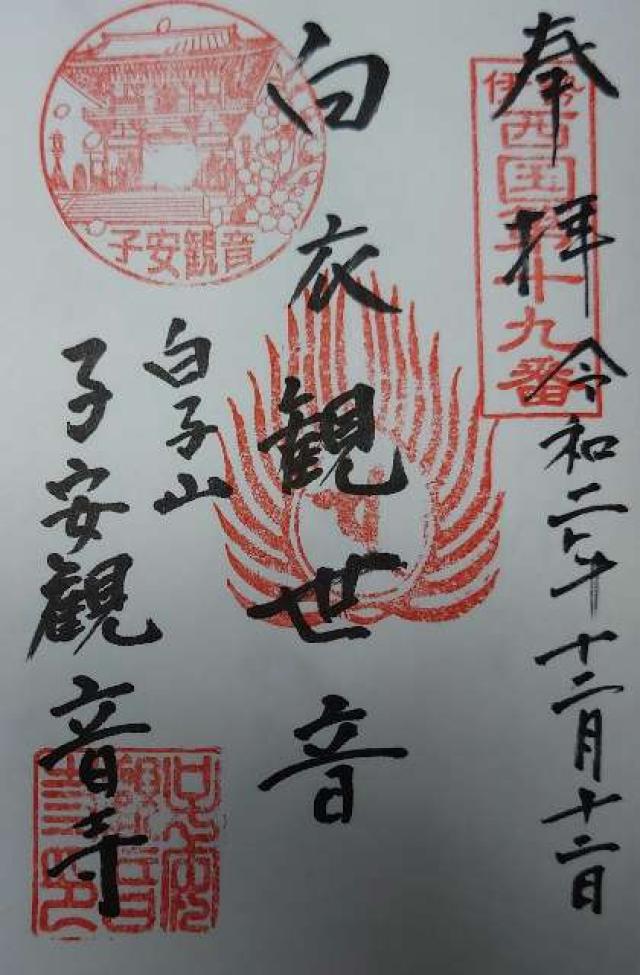 奉拝
伊勢
西国第十九番
令和二年十二月十二日
白衣観世音
子安観音
白子山
子安観音寺